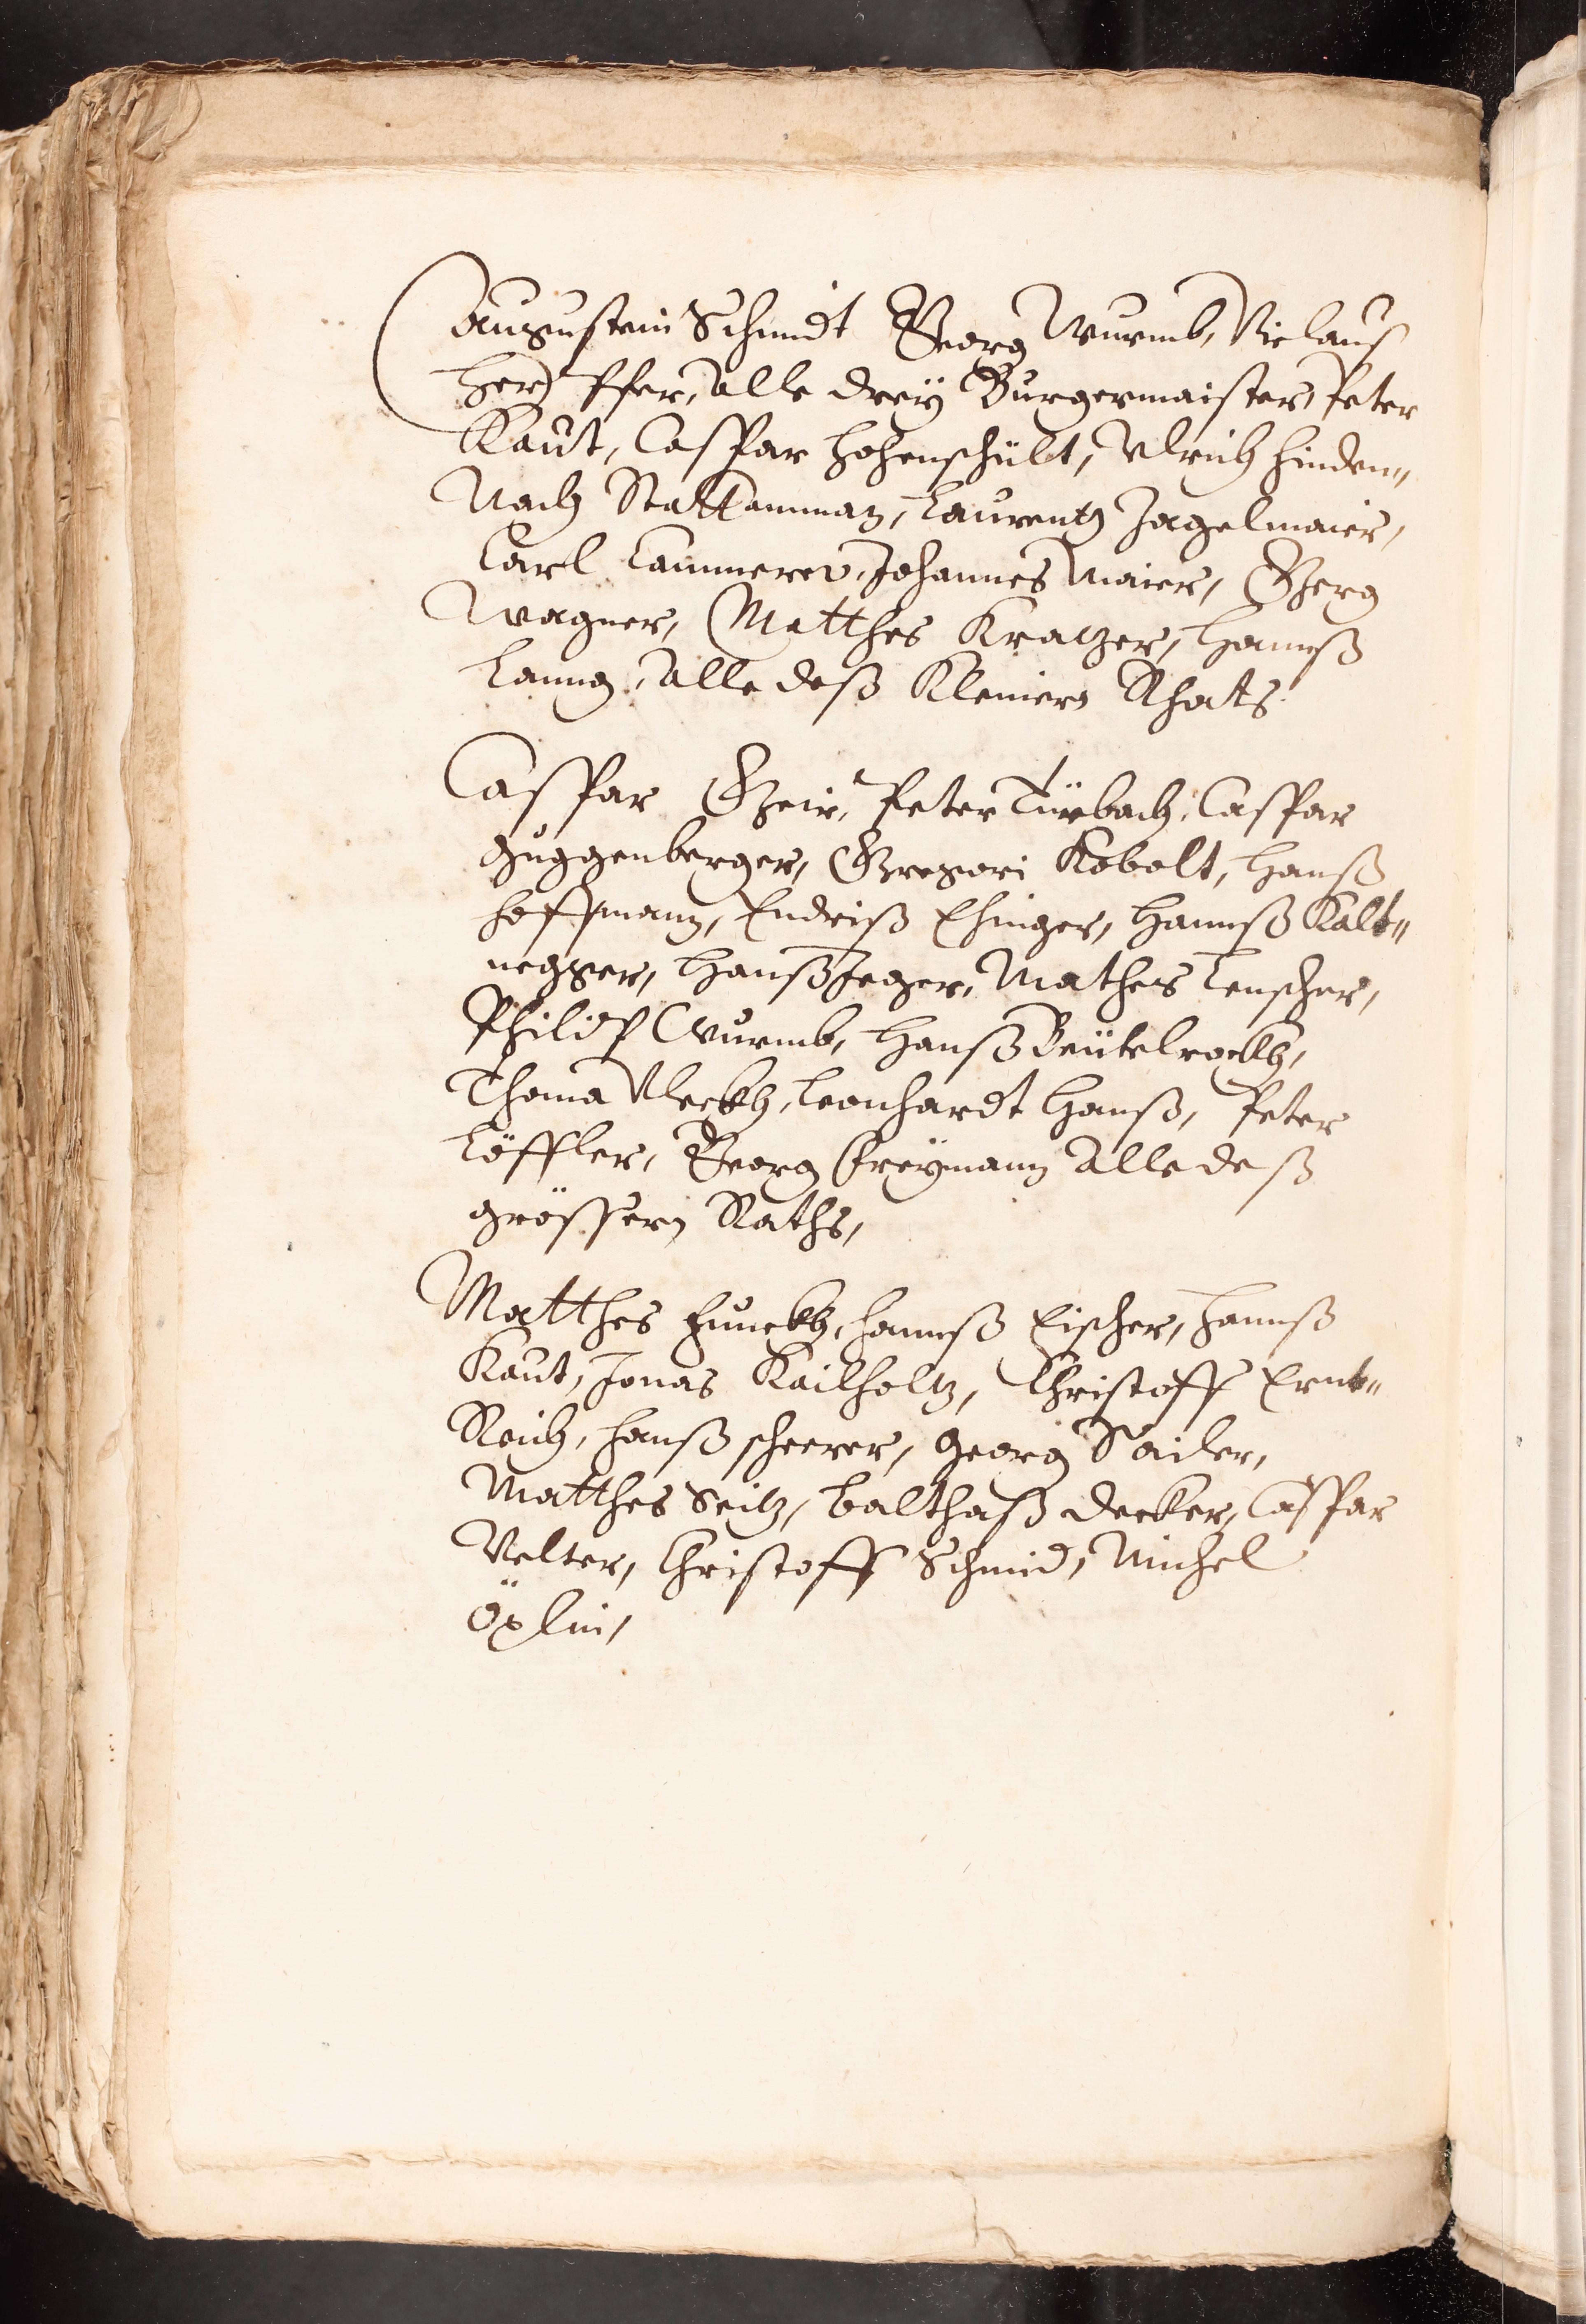 Augustein Schmidt Georg Wurmb, Niclaus
alle dreÿ Burgermaister, Peter
Kaut, Caspar Hohenschült, Vlrich Hinden„
Nach Stattamman, Laurentz Jagelmaier,
Carl Cammerer, Johannes Maier, Georg
Wagner, Matthes Kratzer, Hannß
Laung, Alle deß Kleinern Rhats
Caspar Geir, Peter Türbach, Caspar
Guggenberger, Gregori Kobolt, Hanß
Hoffmann, Endriß Ehinger, Hannß Kalt„
negger, Hanß Jeger, Mathes Tenscher,
Philipp Wurmb, Hanß Beütelrockh,
Thoma Vleckh, Leonhardt Hanß, Peter
Löffler, Georg Freÿmann Alle deß
grössern Raths,
Matthes Funckh, Hannß Fischer, Hannß
Kaut, Jonas Kailholtz, Christoff Ernt„
Reich, Hanß scheerer, Georg Sailer,
Matthes Seitz, Balthaß Decker, Caspar
Velter, Christoff Schmid, Michel
Öxlin,